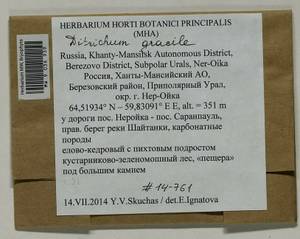 HERBARIUM HORTI BOTANICI PRINCIPALIS
(MHA)
Ditrichum gracile
Russia, Khanty-Mansiisk Autonomous District,
Berezovo District, Subpolar Urals, Ner-Oika
Россия, Ханты-Мансийский АО,
Березовский район, Приполярный Урал,
окр. г. Нер-Ойка
64,51934° N – 59,83091° E E, alt. = 351 m
у дороги пос. Неройка - пос. Саранпауль,
прав. берег реки Шайтанки, карбонатные
породы
елово-кедровый с пихтовым подростом
кустарниково-зеленомошный лес, «пещера»
под большим камнем
#14-761
14.VII.2014 Y.V.Skuchas / det.E.Ignatova